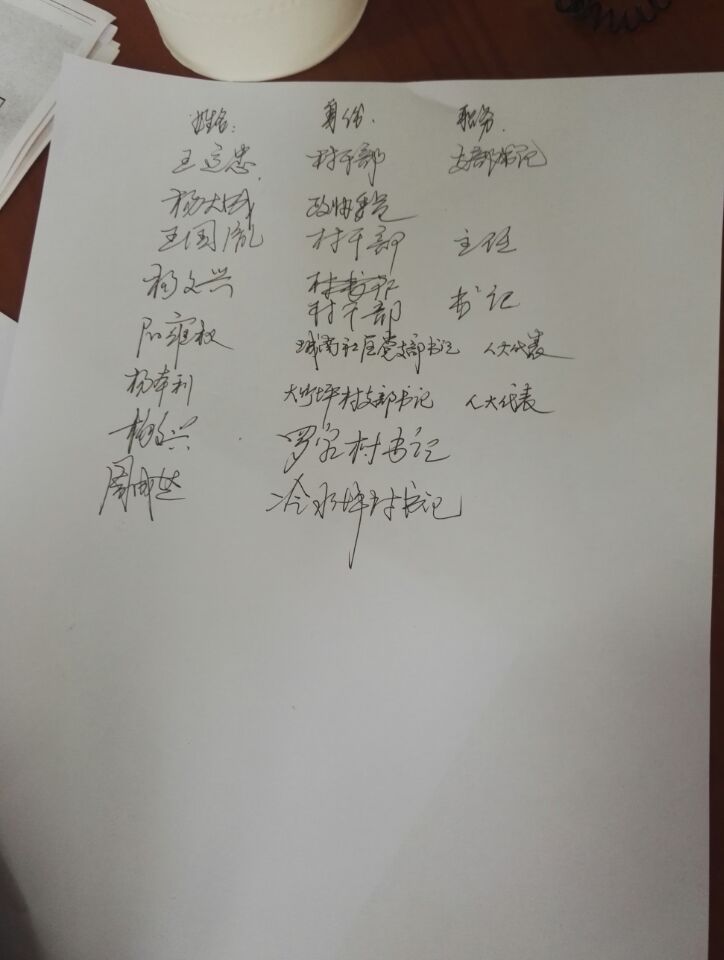 姓名: 身份 职务.
王立忠 村干部 支部书记
杨大成 政协委员
王国胤 村干部 主任
杨文兴 村干部 书记
权 城南社区党支部书记 人大代表
杨本利 大竹坪村支部书记 人大代表
杨文兴 罗家村书记
周 冷水坪村书记